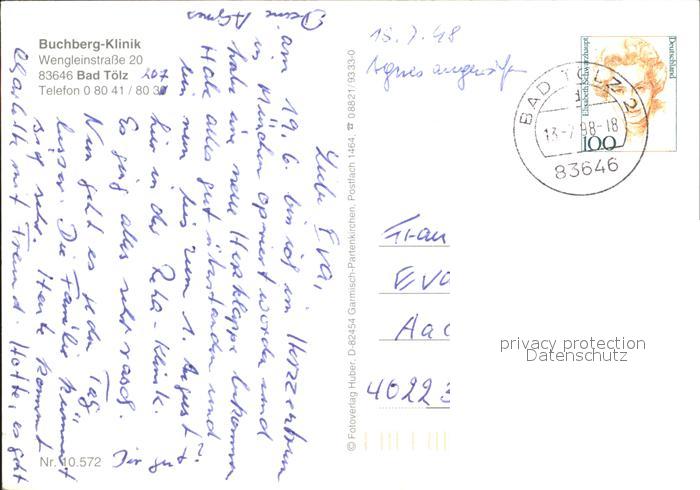 Buchberg-Klinik
Wengleinstraße 20
83646 Bad Tölz 207
Telefon 0 80 41 / 80 3
Liebe Eva,
am 19.6. bin ich im Herzzentrum
in München operiert worden und
habe eine neue Herzklappe bekommen
Habe alles gut überstanden und
bin nun bis zum 1. August
hier in der Reha-Klinik.
Es ging alles sehr rasch.
Nun geht es jeden Tag
besser. Die Familie kümmert
sich sehr. Heute kommt
Charlotte mit Freund. Hoffe, es geht
Dir gut?
Deine Agnes
Nr. 10.572
© Fotoverlag Huber, D-82454 Garmisch-Partenkirchen, Postfach 1464, ☎ 08821/9333-0
13.7.98
Agnes angerufen
Deutschland
Elisabeth Schwarzhaupt
100
BAD TÖLZ 2
13-7.98-18
83646
Frau
Eva
Aac
40223
privacy protection
Datenschutz